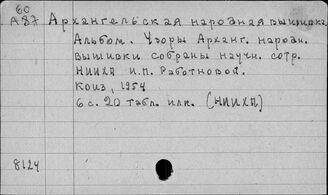 60
А87 Архангельская народная вышивка.
Альбом. Узоры Арханг. народн.
вышивки собраны научн. сотр.
НИИХП И.П. Работновой.
Коиз, 1954
6 с. 20 табл. илл. (НИИХП)
8124